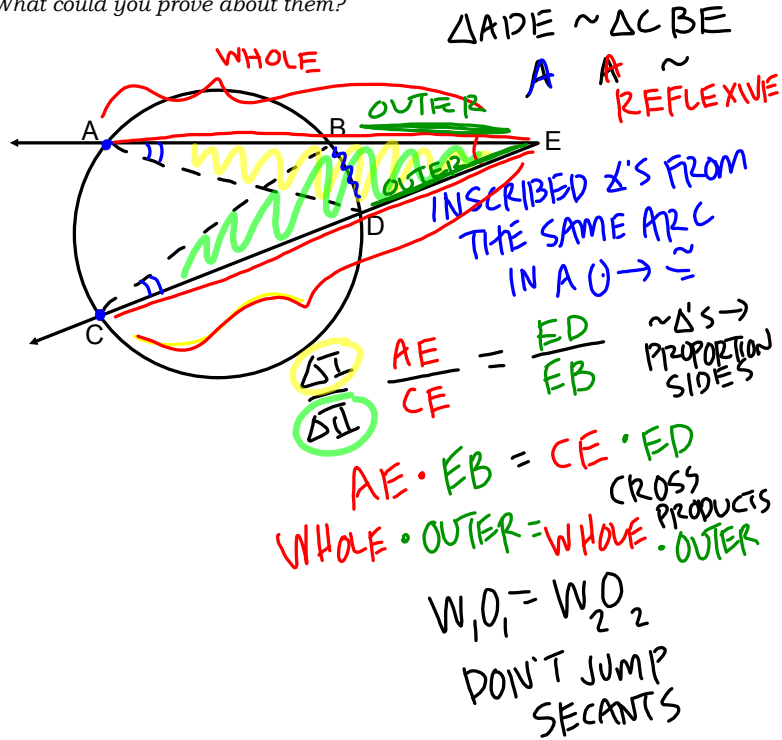 What could you prove about them?
△ADE ~ △CBE
A A ~
REFLEXIVE
WHOLE
OUTER
A
B
E
OUTER
D
C
INSCRIBED ∡'S FROM
THE SAME ARC
IN A ⊙ → ≅
~△'S →
PROPORTION
SIDES
△I
△II
AE
CE
=
ED
EB
AE · EB = CE · ED
CROSS
PRODUCTS
WHOLE · OUTER = WHOLE · OUTER
W₁O₁ = W₂O₂
DON'T JUMP
SECANTS